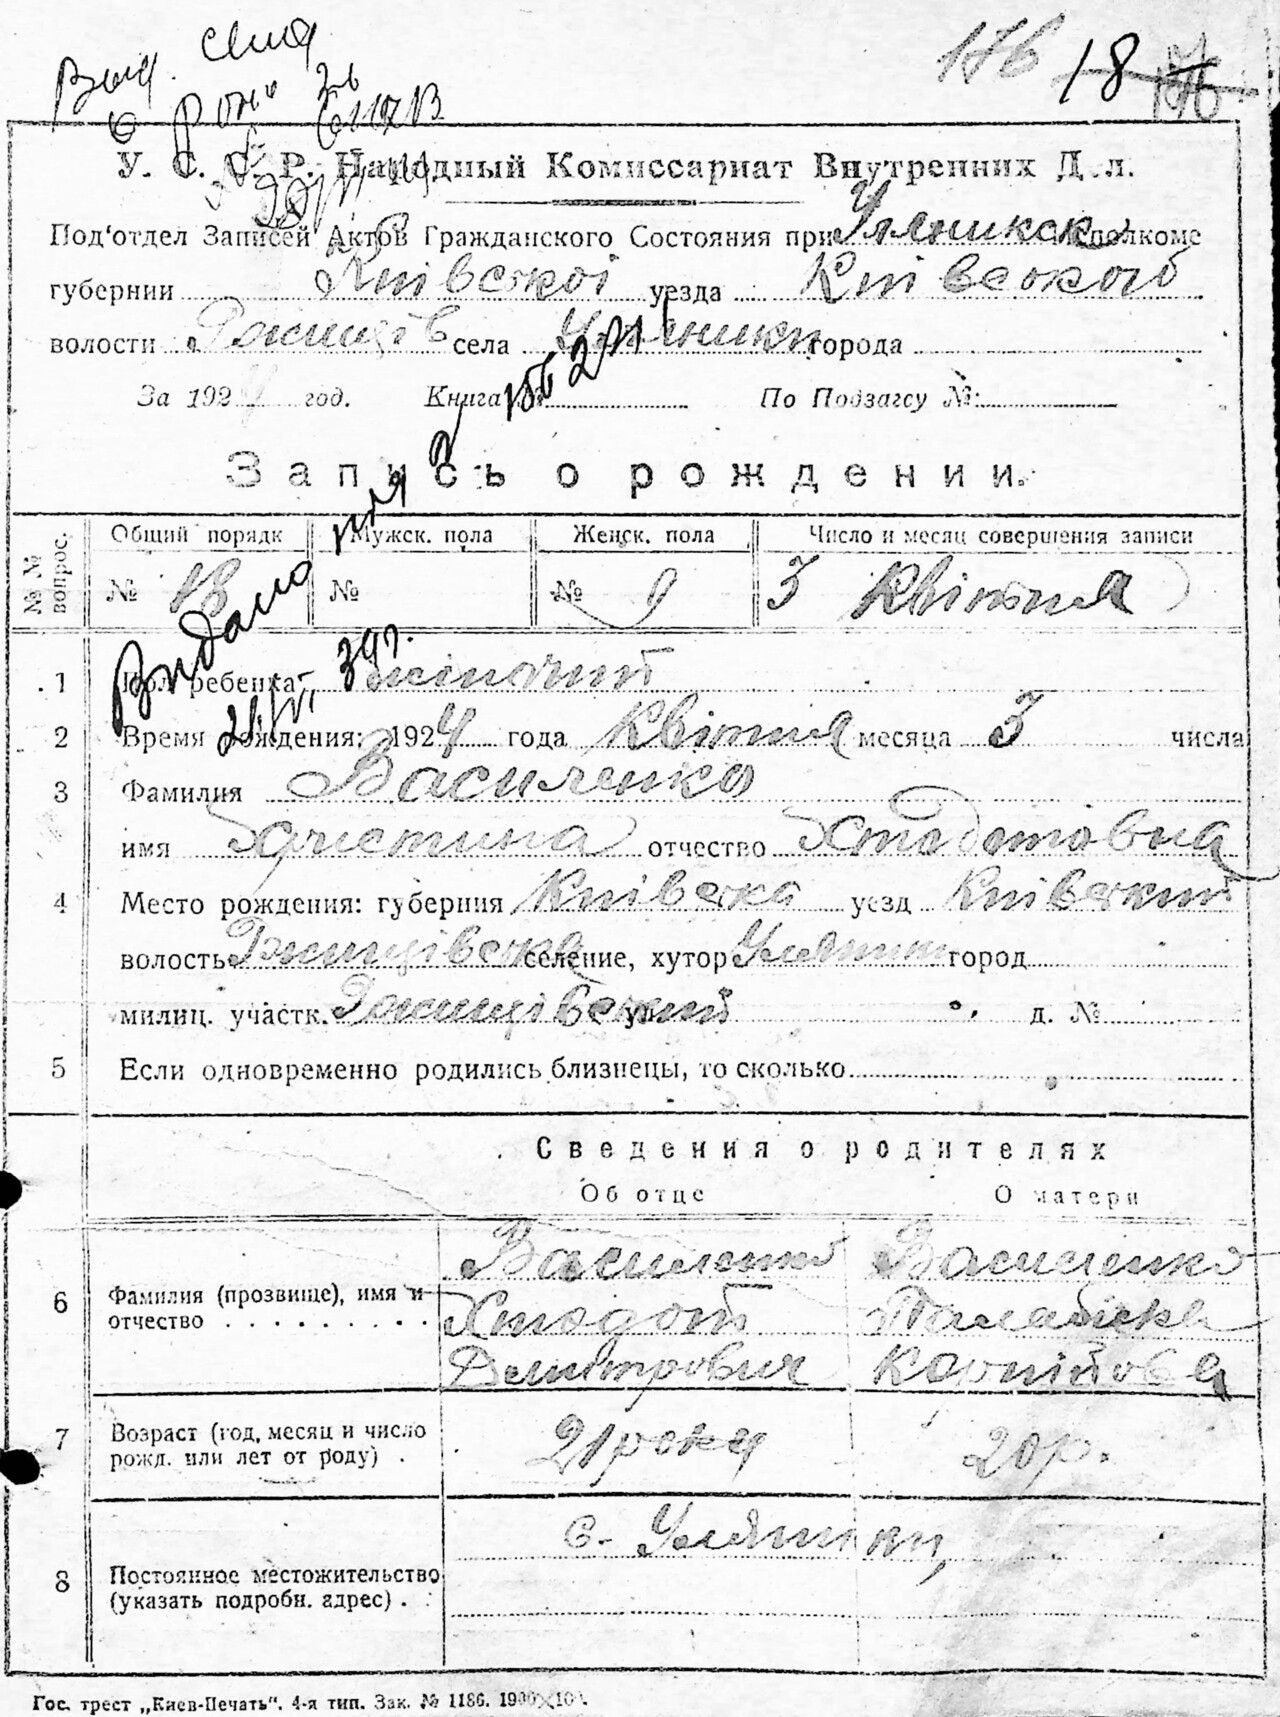 176 18
У. С. С. Р. Народный Комиссариат Внутренних Дел.
Под‘отдел Записей Актов Гражданского Состояния при исполкоме
губернии Київської уезда Київського
волости Ржищів села Уляники города
За 1924 год. Книга № По Подзагсу №:
Запись о рождении.
№ № вопрос. Общий порядк Мужск. пола Женск. пола Число и месяц совершения записи
№ 18 № № 9 3 Квітня
Видано
39 г.
1 Пол ребенка жіночий
2 Время рождения: 1924 года Квітня месяца 3 числа
3 Фамилия Василенко
имя Христина отчество Хтодотовна
4 Место рождения: губерния Київска уезд Київский
волость Ржищівска селение, хутор Уляники город
милиц. участк. Ржищівський д. №
5 Если одновременно родились близнецы, то сколько
Сведения о родителях
Об отце О матери
6 Фамилия (прозвище), имя и отчество Василенко Василенко
Хтодот
Дмитрович Карпівна
7 Возраст (год, месяц и число рожд. или лет от роду) . 21 року 20 р.
8 Постоянное местожительство (указать подробн. адрес) . с. Уляники,
Гос. трест „Киев-Печать“. 4-я тип. Зак. № 1186.